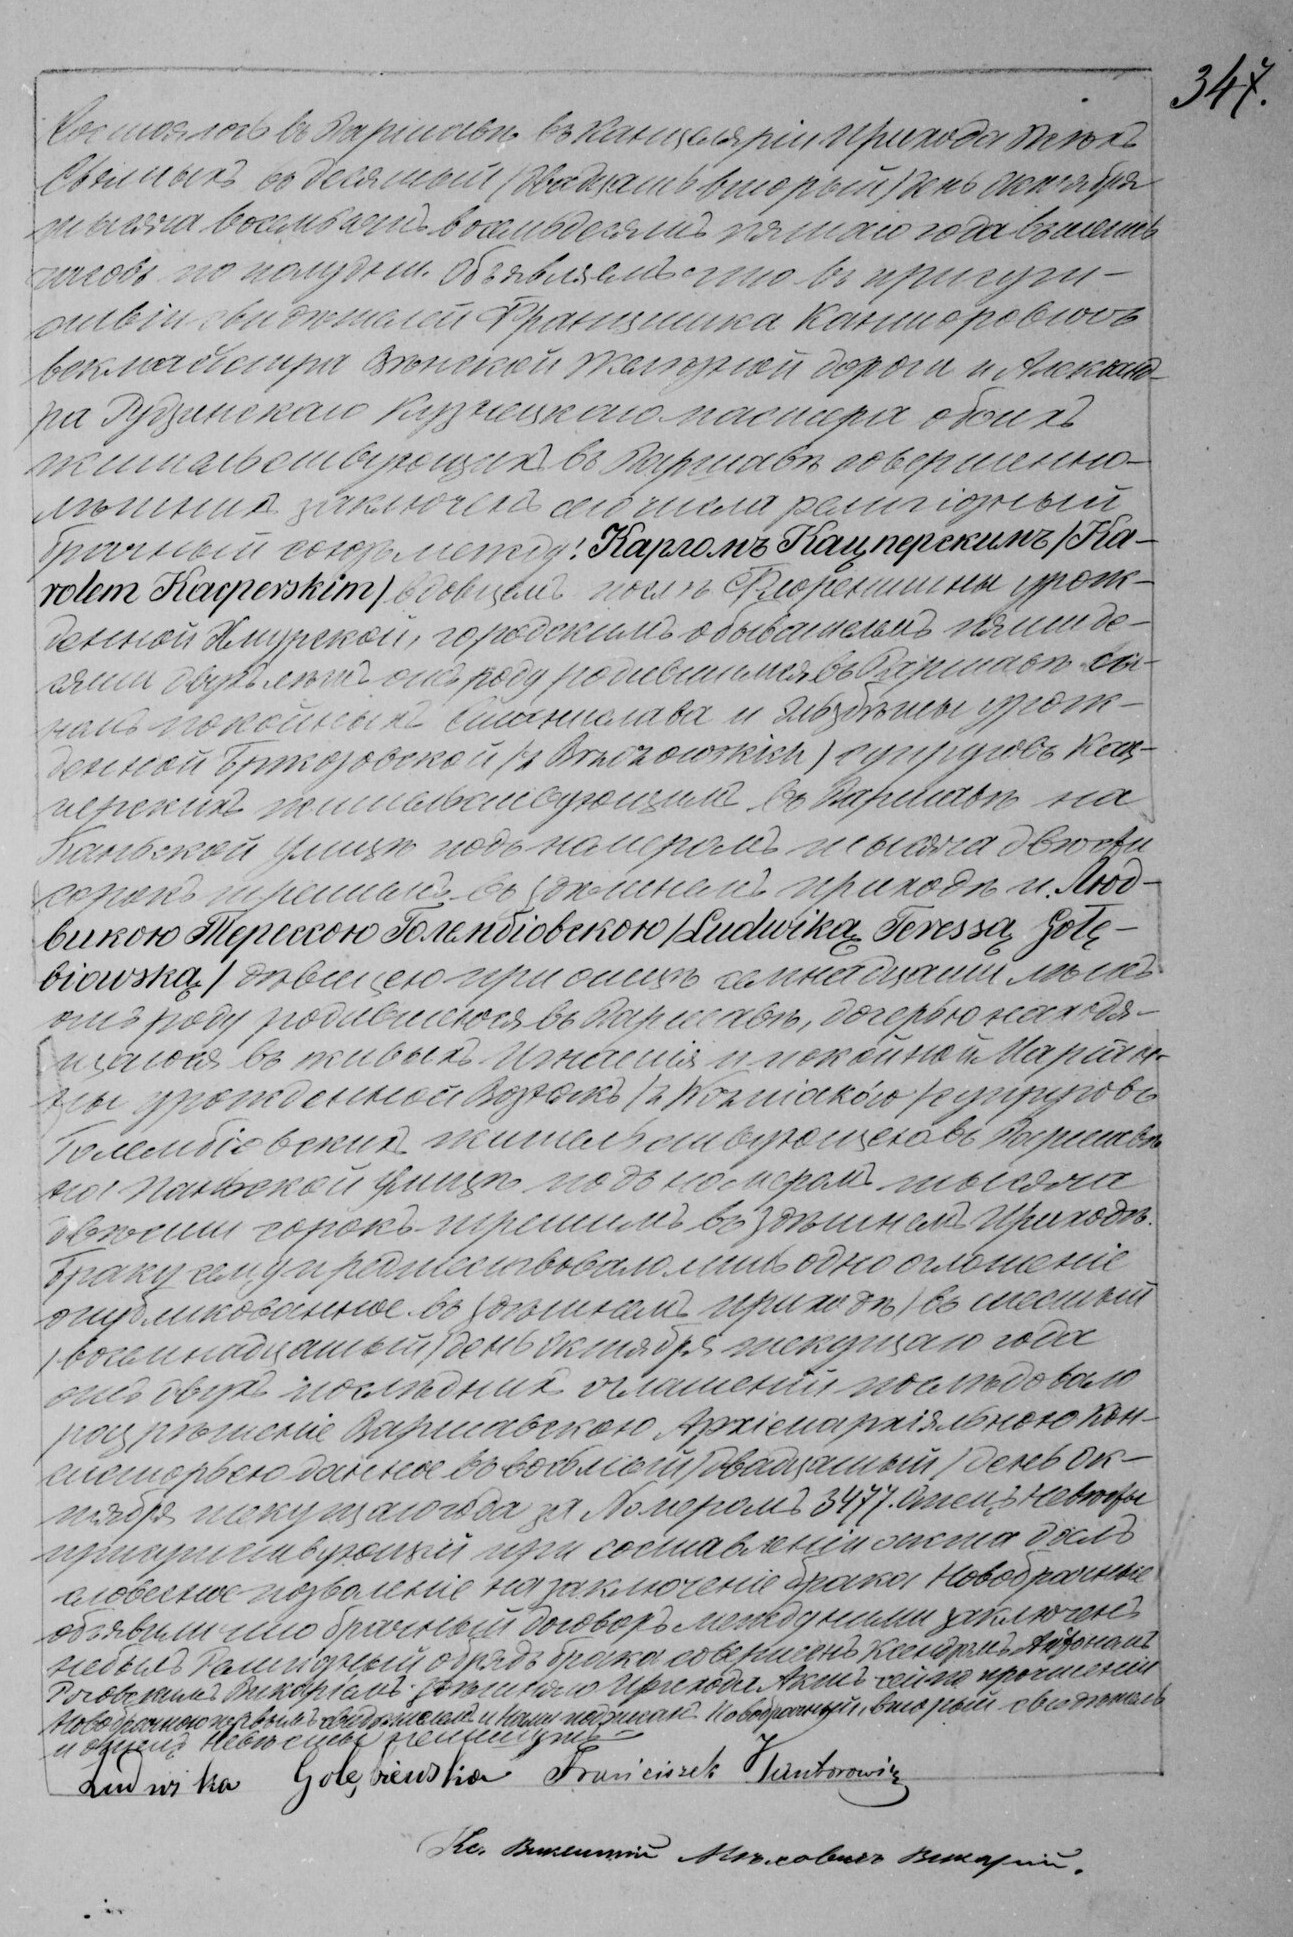 347.
Состоялось въ Варшавѣ въ Канцеляріи Прихода Всѣхъ
Святыхъ въ десятый /двадцать второй/ день Октября
тысяча восемьсотъ восемьдесятъ пятаго года въ шесть
часовъ по полудни. Объявляемъ что въ присут-
ствіи свидѣтелей Францишка Канторовича
векмайстра Вѣнской желѣзной дороги и Александ-
ра Рудзинскаго Кузнецкаго мастера обоихъ
жительствующихъ въ Варшавѣ совершенно-
лѣтнихъ заключенъ сего числа религіозный
брачный союзъ между: Карломъ Кацперскимъ /Ka-
rolem Kacperskim/ вдовцемъ послѣ Флорентины урож-
денной Хмурской, городскимъ обывателемъ пятиде-
сяти двухъ лѣтъ отъ роду родившимся въ Варшавѣ сы-
номъ покойныхъ Станислава и Эльзбѣты урож-
денной Бржозовской /z Brzozowskich/ супруговъ Кац-
перскихъ жительствующимъ въ Варшавѣ на
Паньской улицѣ подъ номеромъ тысяча двѣсти
сорокъ третьимъ въ здѣшнемъ приходѣ и Люд-
викою Терессою Голембіовскою /Ludwiką Teressą Gołę-
biowską/ дѣвицею при отцѣ семнадцати лѣтъ
отъ роду родившеюся въ Варшавѣ, дочерью находя-
щагося въ живыхъ Игнатія и покойной Маріан-
ны урожденной Возняк /z Woźniaków/ супруговъ
Голембіовскихъ жительствующею въ Варшавѣ
на Паньской улицѣ подъ номеромъ тысяча
двѣсти сорокъ третьимъ въ здѣшнемъ Приходѣ.
Браку сему предшествовало лишь одно оглашеніе
опубликованное въ здѣшнемъ приходѣ въ шестый
/восемнадцатый/ день Октября текущаго года
отъ двухъ послѣднихъ оглашеній послѣдовало
разрѣшеніе Варшавскою Архіепархіяльною Кон-
систорьею данное въ восьмый /двадцатый/ день Ок-
тября текущаго года за Номеромъ 3477. Отецъ Невѣсты
присутствующій при составленіи акта далъ
словесное позволеніе на заключеніе брака Новобрачные
объявили что брачный договоръ между ними заключенъ
небылъ Религіозный обрядъ брака совершенъ Ксендзомъ Антономъ
Викаріемъ здѣшняго Прихода Актъ сей по прочтеніи
Новобрачною первымъ свидѣтелемъ и Нами подписанъ Новобрачный, вторый свидѣтель
и отецъ Невѣсты неписьменны
Ludwika Gołębiewska Franciszek Kantorowicz
Кс. Викентій Викарій.